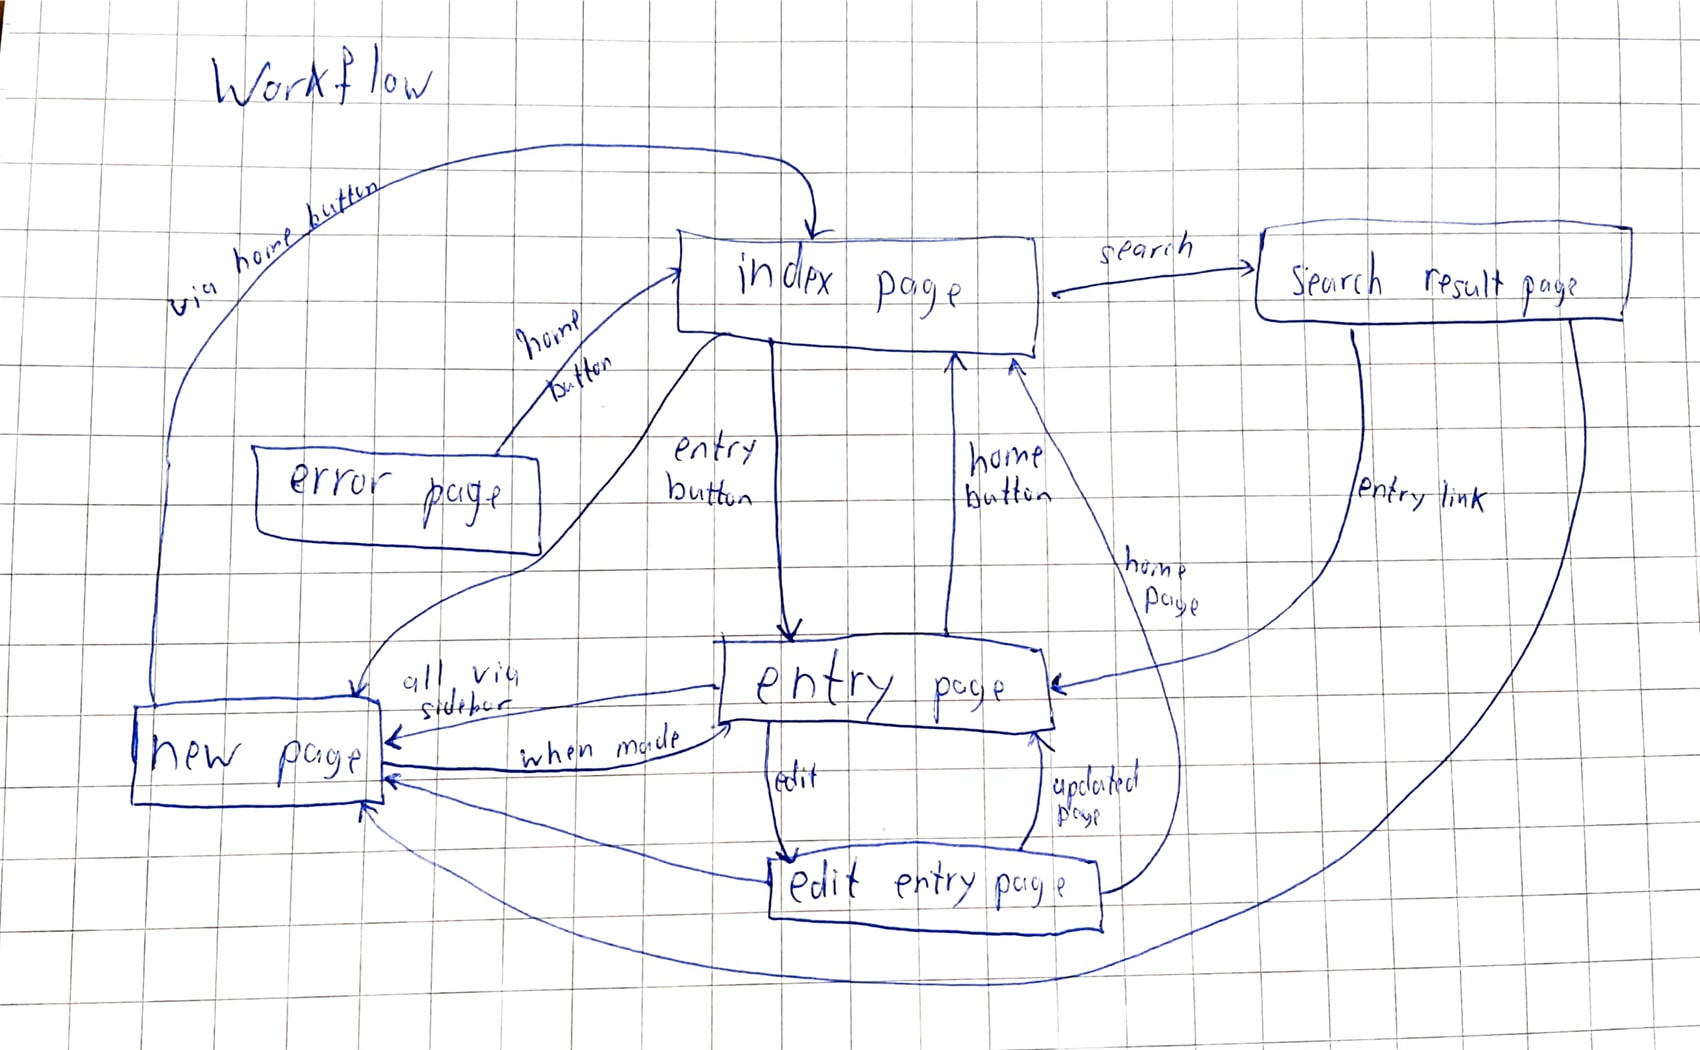 Workflow
via home button
index page
search
search result page
home
button
error page
entry
button
home
button
entry link
home
page
all via
sidebar
entry page
new page
when made
edit
updated
page
edit entry page